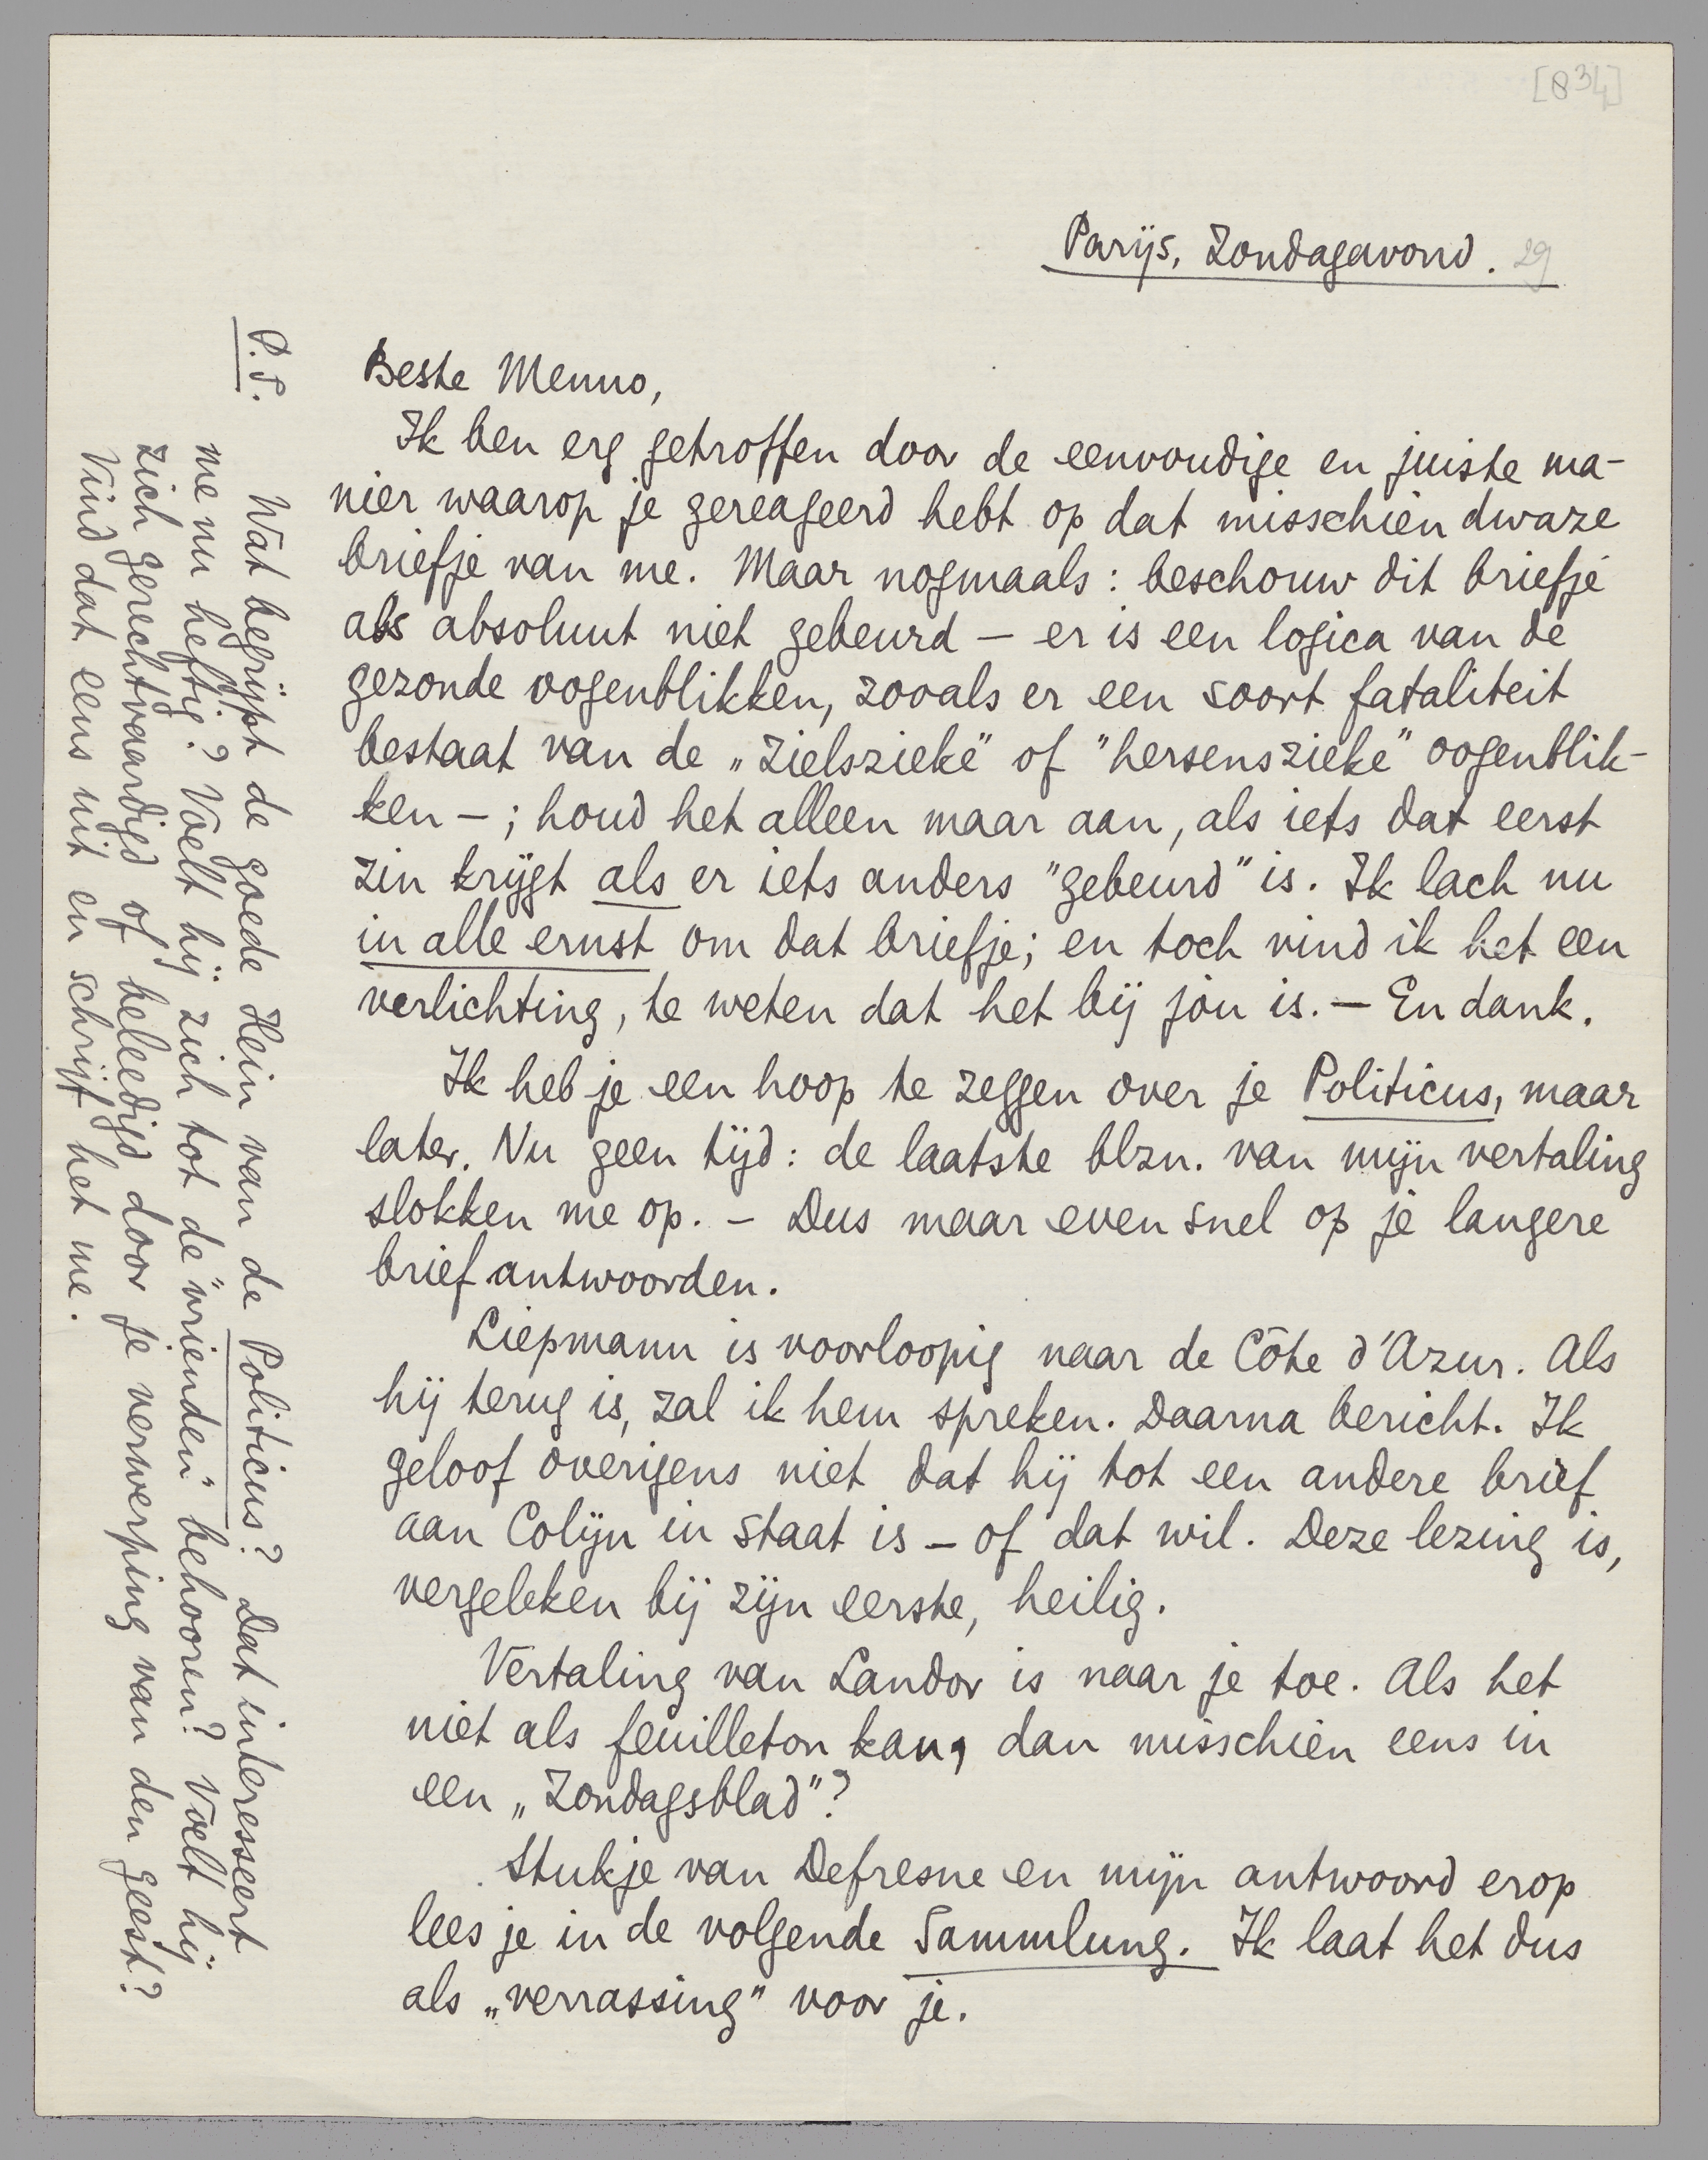 [834]
Parijs, Zondagavond. 29
Beste Menno,
Ik ben erg getroffen door de eenvoudige en juiste ma-
nier waarop je gereageerd hebt op dat misschien dwaze
briefje van me. Maar nogmaals: beschouw dit briefje
als absoluut niet gebeurd — er is een logica van de
gezonde oogenblikken, zooals er een soort fataliteit
bestaat van de „zielszieke" of "hersenszieke" oogenblik-
ken —; houd het alleen maar aan, als iets dat eerst
zin krijgt als er iets anders "gebeurd" is. Ik lach nu
in alle ernst om dat briefje; en toch vind ik het een
verlichting, te weten dat het bij jou is. — En dank.
Ik heb je een hoop te zeggen over je Politicus, maar
later. Nu geen tijd: de laatste blzn. van mijn vertaling
slokken me op. — Dus maar even snel op je langere
brief antwoorden.
Liepmann is voorloopig naar de Côte d'Azur. Als
hij terug is, zal ik hem spreken. Daarna bericht. Ik
geloof overigens niet dat hij tot een andere brief
aan Colijn in staat is — of dat wil. Deze lezing is,
vergeleken bij zijn eerste, heilig.
Vertaling van Landor is naar je toe. Als het
niet als feuilleton kan, dan misschien eens in
een „Zondagsblad"?
Stukje van Defresne en mijn antwoord erop
lees je in de volgende Sammlung. Ik laat het dus
als „verrassing" voor je.
P.S.
Wat begrijpt de goede Hein van de Politicus? Dat interesseert
me nu heftig? Voelt hij zich tot de "vrienden" behooren? Voelt hij
zich gerechtvaardigd of beleedigd door je verwerping van den geest?
Vind dat eens uit en schrijf het me.